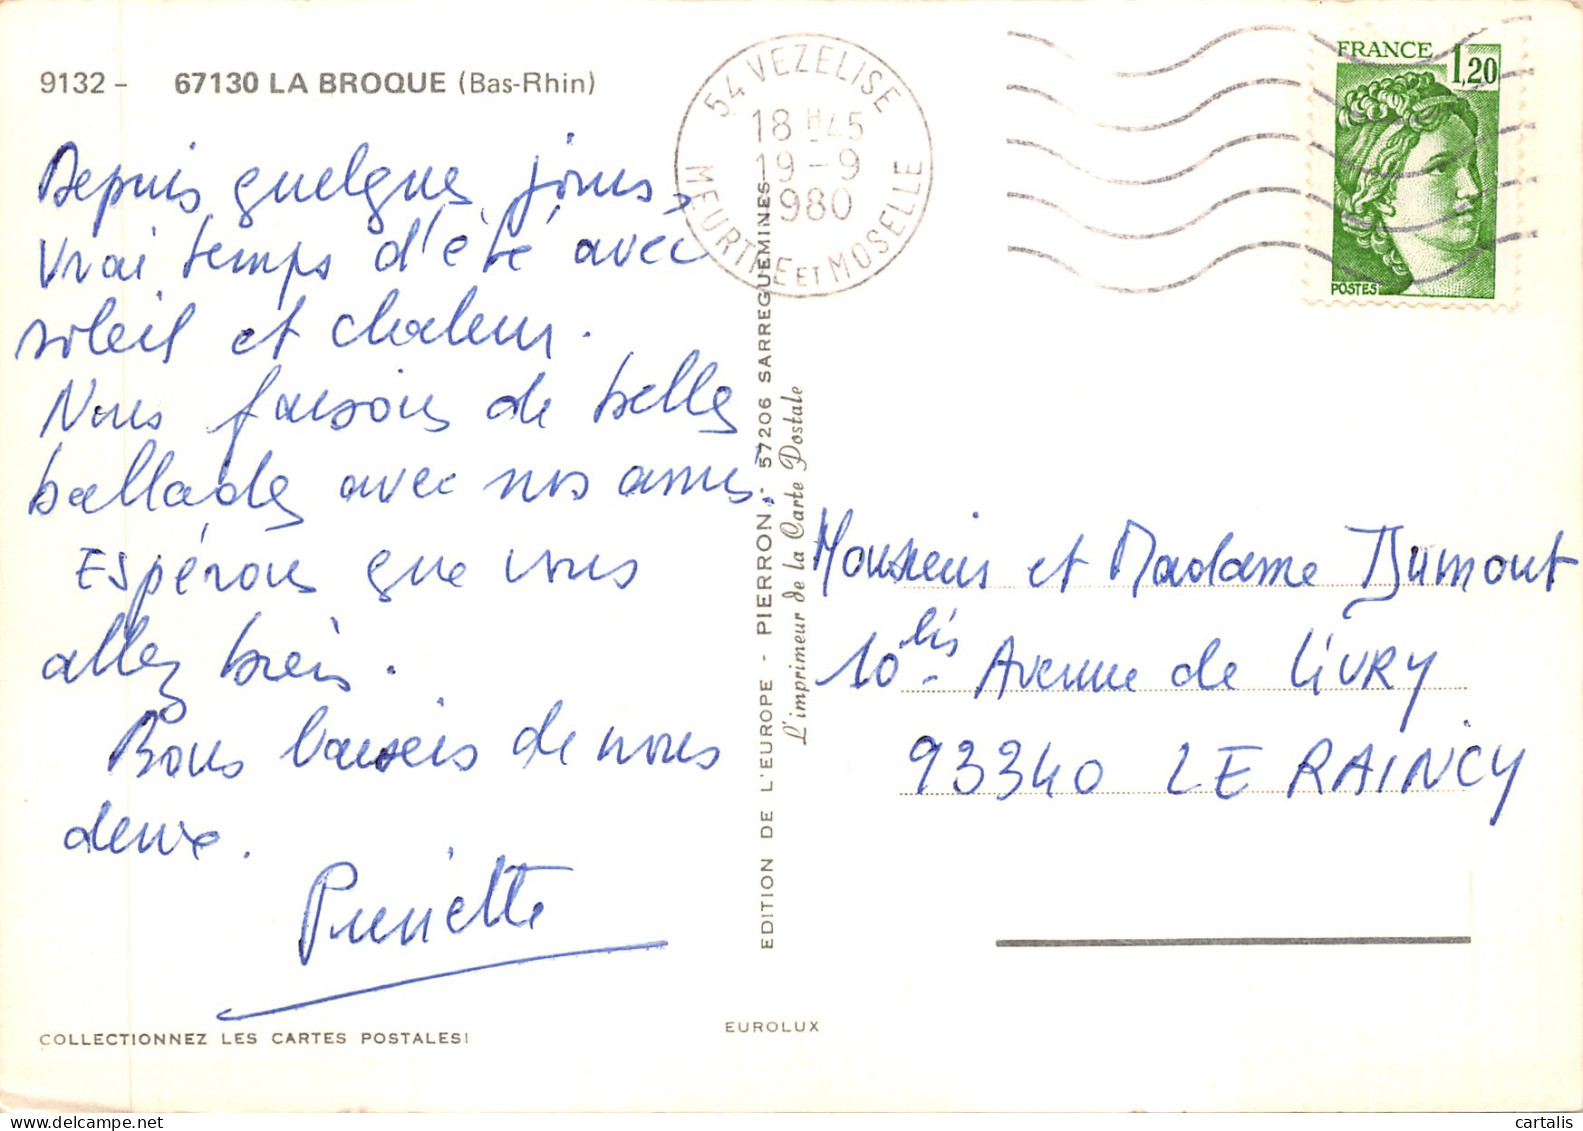 9132 - 67130 LA BROQUE (Bas-Rhin)
Depuis quelques jours,
vrai temps d'été avec
soleil et chaleur.
Nous faisons de belles
ballades avec nos amis.
Espérons que vous
allez bien.
Bons baisers de nous
deux.
Pierrette
COLLECTIONNEZ LES CARTES POSTALES!
EDITION DE L'EUROPE - PIERRON, 57206 SARREGUEMINES
L'imprimeur de la Carte Postale
EUROLUX
54 VEZELISE
18 H 45
19 - 9
1980
MEURTHE ET MOSELLE
FRANCE 1,20
POSTES
Monsieur et Madame Dumont
10 bis - Avenue de LIVRY
93340 LE RAINCY
cartalis